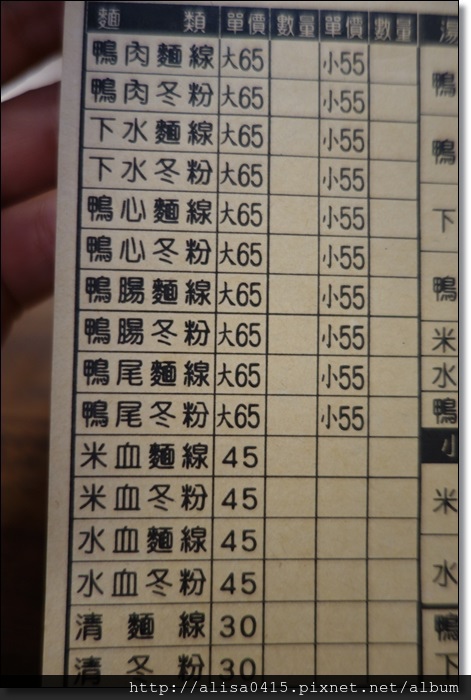 麵 類 單價 數量 單價 數量 湯
鴨肉麵線 大65 小55 鴨
鴨肉冬粉 大65 小55
下水麵線 大65 小55 鴨
下水冬粉 大65 小55
鴨心麵線 大65 小55 下
鴨心冬粉 大65 小55
鴨腸麵線 大65 小55 鴨
鴨腸冬粉 大65 小55 米
鴨尾麵線 大65 小55 水
鴨尾冬粉 大65 小55 鴨
米血麵線 45 小
米血冬粉 45 米
水血麵線 45
水血冬粉 45 水
清麵線 30 鴨
清冬粉 30 下
http://alisa0415.pixnet.net/album